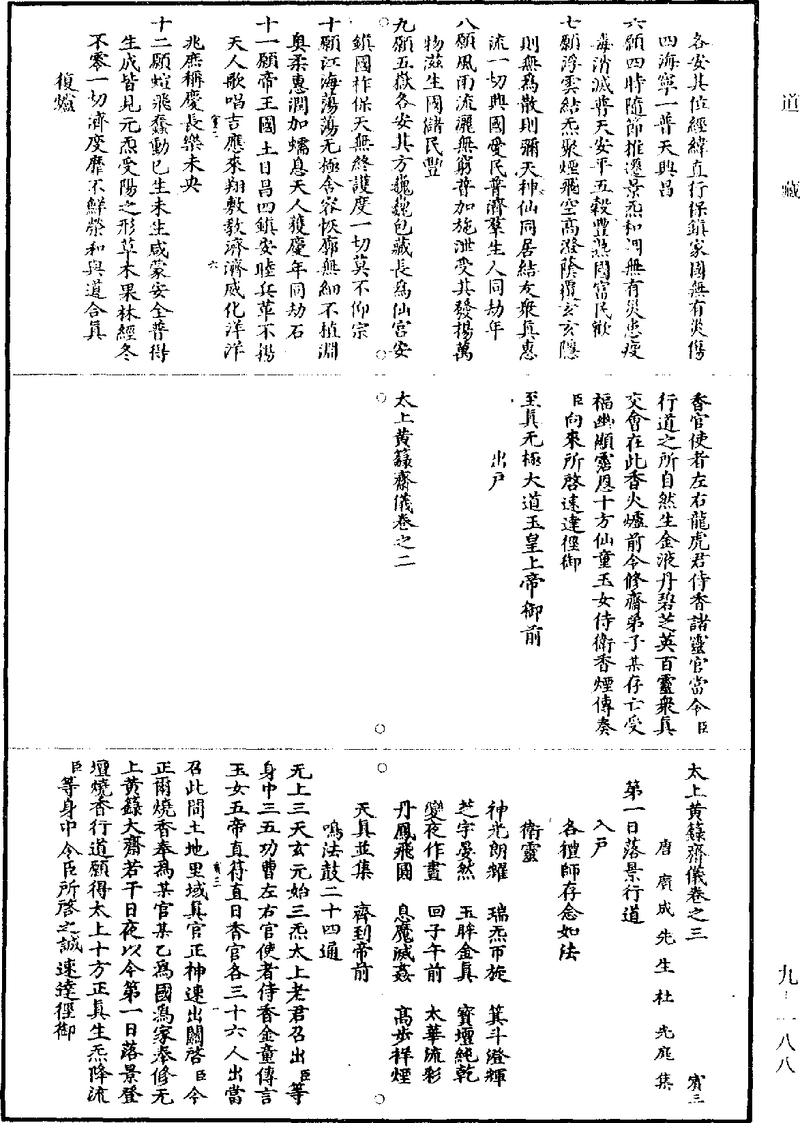 道藏
各安其位經緯直行保鎮家國無有災傷
四海寧一普天興昌
六願四時隨節推遷景炁和調無有災患疫
毒消滅普天安平五穀豐熟國富民歡
七願浮雲結炁聚煙飛空高澄蔭覆玄玄隱
則無為散則彌天神仙同居結友衆真惠
流一切興國愛民普濟羣生人同劫年
八願風雨流灑無窮普加施泄受其發揚萬
物滋生國儲民豐
九願五嶽各安其方巍巍包藏長為仙宫安
鎮國祚保天無終謢度一切莫不仰宗
十願江海蕩蕩无極含容恢廓無細不植淵
奥柔惠潤加蠕息天人獲慶年同劫石
十一願帝王國土日昌四鎮安睦兵革不揚
天人歌唱吉應來翔敷教濟濟威化洋洋
兆庶稱慶長樂未央
十二願蝖飛蠢動已生未生咸蒙安全普得
生成皆見元炁受陽之形草木果林經冬
不零一切濟度靡不鮮榮和與道合真
復爐
香官使者左右龍虎君侍香諸靈官當令臣
行道之所自然生金液丹碧芝英百靈衆真
交會在此香火爐前令修齋弟子某存亡受
福幽顯霑恩十方仙童玉女侍衛香煙傳奏
臣向來所啓速達徑御
至真无極大道玉皇上帝御前
出户
太上黄籙齋儀卷之二
太上黄籙齋儀卷之三
賓三
唐廣成先生杜光庭集
第一日落景行道
入户
各禮師存念如法
衛靈
神光朗耀 瑞炁帀旋 箕斗澄輝
芝宇晏然 玉眸金真 寳壇純乾
變夜作晝 回子午前 太華流彩
丹鳳飛國 息魔滅姦 高步祥煙
天真並集 齊到帝前
鳴法鼓二十四通
无上三天玄元始三炁太上老君召出臣等
身中三五功曹左右官使者侍香金童傳言
玉女五帝直符直日香官各三十六人出當
召此間土地里域真官正神速出關啓臣今
正爾燒香奉為某官某乙為國為家奉修无
上黄籙大齋若干日夜以今第一日落景登
壇燒香行道願得太上十方正真生炁降流
臣等身中令臣所啓之誠速達徑御
九·一八八